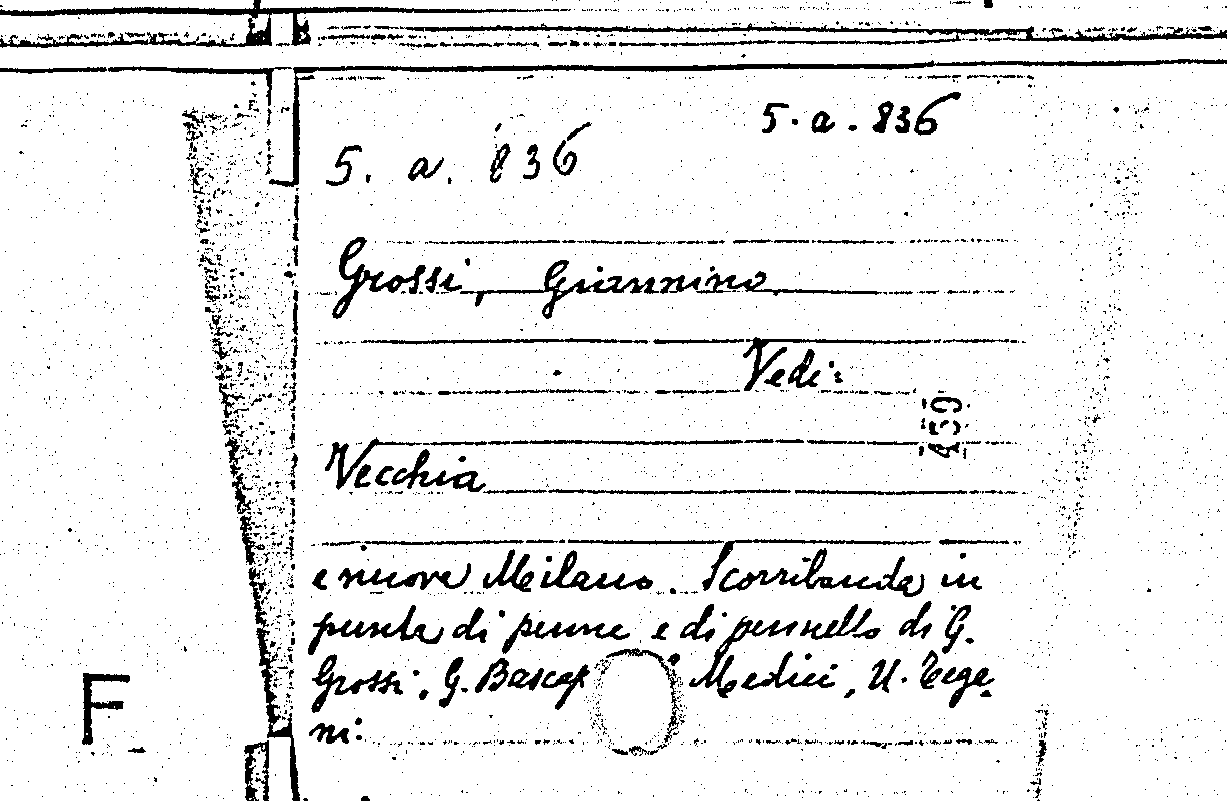 5. a. 836
5. a. 836
Grossi, Giannino
Vedi:
459
Vecchia
e nuova Milano. Scorribanda in
punta di penne e di pennello di G.
Grossi, G. Bascap Medici, U. Tege-
ni:
F